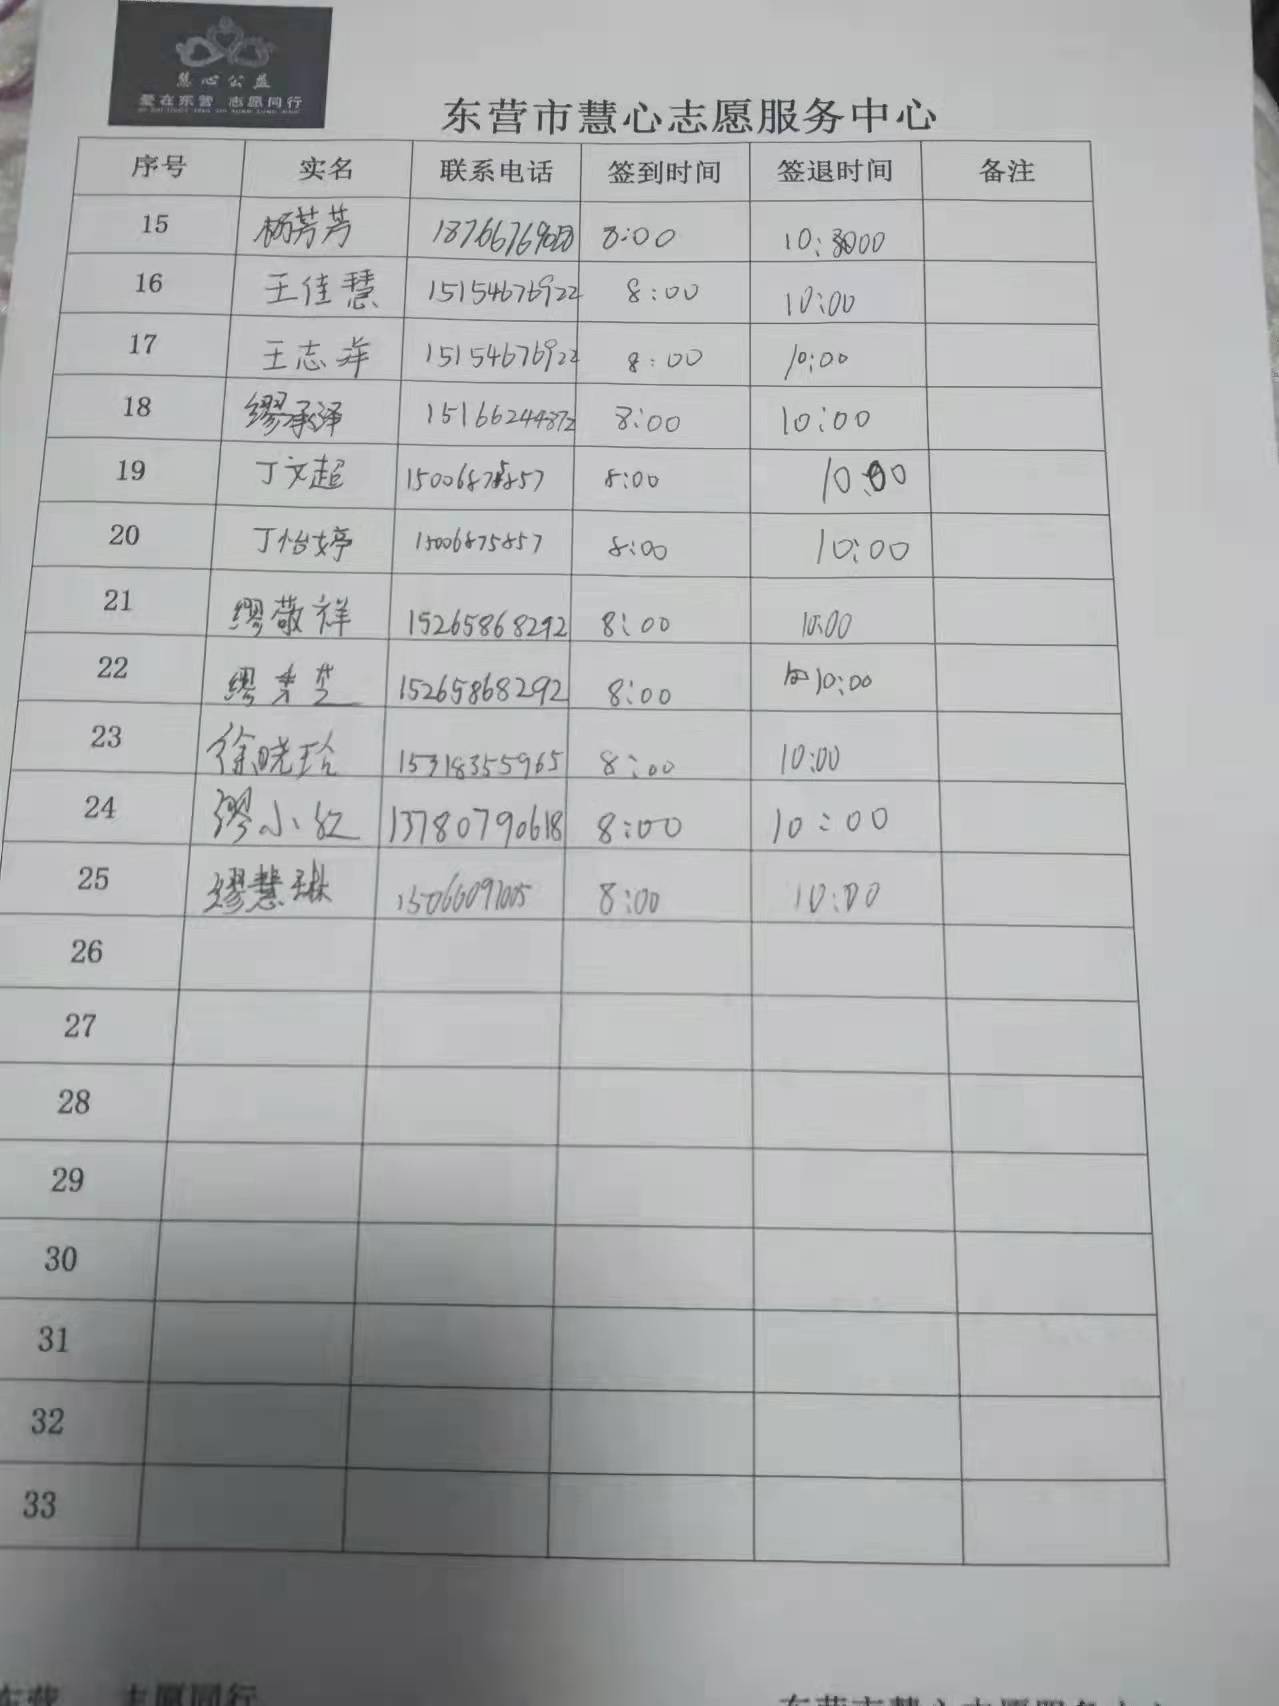 慧心公益
爱在东营 志愿同行
东营市慧心志愿服务中心
序号 实名 联系电话 签到时间 签退时间 备注
15 杨芳芳 8:00
16 王佳慧 15154676922 8:00 10:00
17 王志洋 15154676922 8:00 10:00
18 缪承泽 15166244872 8:00 10:00
19 丁文超 8:00 10:00
20 丁怡婷 15006875857 8:00 10:00
21 缪敬祥 15265868292 8:00 10:00
22 缪 15265868292 8:00 10:00
23 徐晓玲 15318355965 8:00 10:00
24 缪小红 13780790618 8:00 10:00
25 缪慧琳 15066091005 8:00 10:00
26
27
28
29
30
31
32
33
东营 志愿同行 东营市慧心志愿服务中心